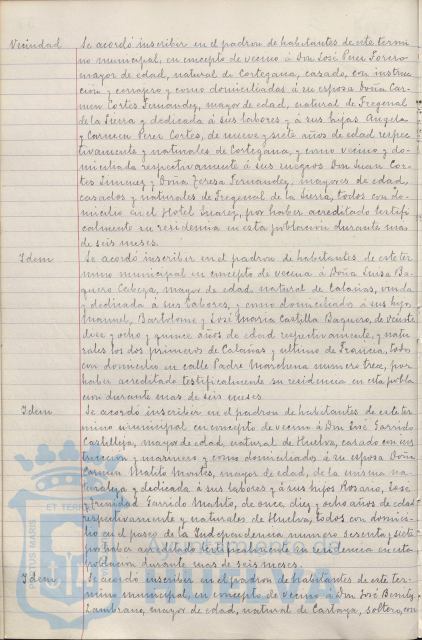 Vecindad Se acordó inscribir en el padron de habitantes de este termi
no municipal, en concepto de vecino á Don José Perez Forero
mayor de edad, natural de Cortegana, casado, con instruc
cion y cerrajero y como domiciliados á su esposa Doña Car-
men Cortes Fernandez, mayor de edad, natural de Fregenal
de la Sierra y dedicada á sus labores y á sus hijas Angela
y Carmen Perez Cortes, de nueve y siete años de edad respec-
tivamente y naturales de Cortegana, y como vecino y do-
miciliada respectivamente á sus suegros Don Juan Cor-
tes Jimenez y Doña Teresa Fernandez, mayores de edad,
casados y naturales de Fregenal de la Sierra, todos con do-
micilio en el Hotel Suarez, por haber acreditado testifi-
calmente su residencia en esta poblacion durante mas
de seis meses.
Idem Se acordó inscribir en el padron de habitantes de este tér
mino municipal en concepto de vecina á Doña Luisa Ba-
quero Cebeza, mayor de edad natural de Calañas, viuda
y dedicada á sus labores, y como domiciliados á sus hijos
Manuel, Bartolomé y José Maria Castilla Baquero, de veinte
diez y ocho y quince años de edad respectivamente, y natu-
rales los dos primeros de Calañas y ultimo de Francia, todos
con domicilio en calle Padre Marchena numero trece, por
haber acreditado testificalmente su residencia en esta pobla
cion durante mas de seis meses
Idem Se acordó inscribir en el padron de habitantes de este tér
mino municipal en concepto de vecino á Don José Garrido
Castilleja, mayor de edad, natural de Huelva, casado con ins
truccion y marinero y como domiciliados á su esposa Doña
Carmen Matito Montes, mayor de edad, de la misma na-
turaleza y dedicada á sus labores y á sus hijos Rosario, José
y Trinidad Garrido Matito, de once, diez y ocho años de edad
respectivamente y naturales de Huelva, todos con domici-
lio en el paseo de la Independencia numero sesenta y siete
por haber acreditado testificalmente su residencia en esta
poblacion durante mas de seis meses.
Idem Se acordó inscribir en el padron de habitantes de este ter-
mino municipal, en concepto de vecino á Don José Benitez
Zambrano, mayor de edad, natural de Cartaya, soltero, con
PORTUS MARIS
ET TERRAE